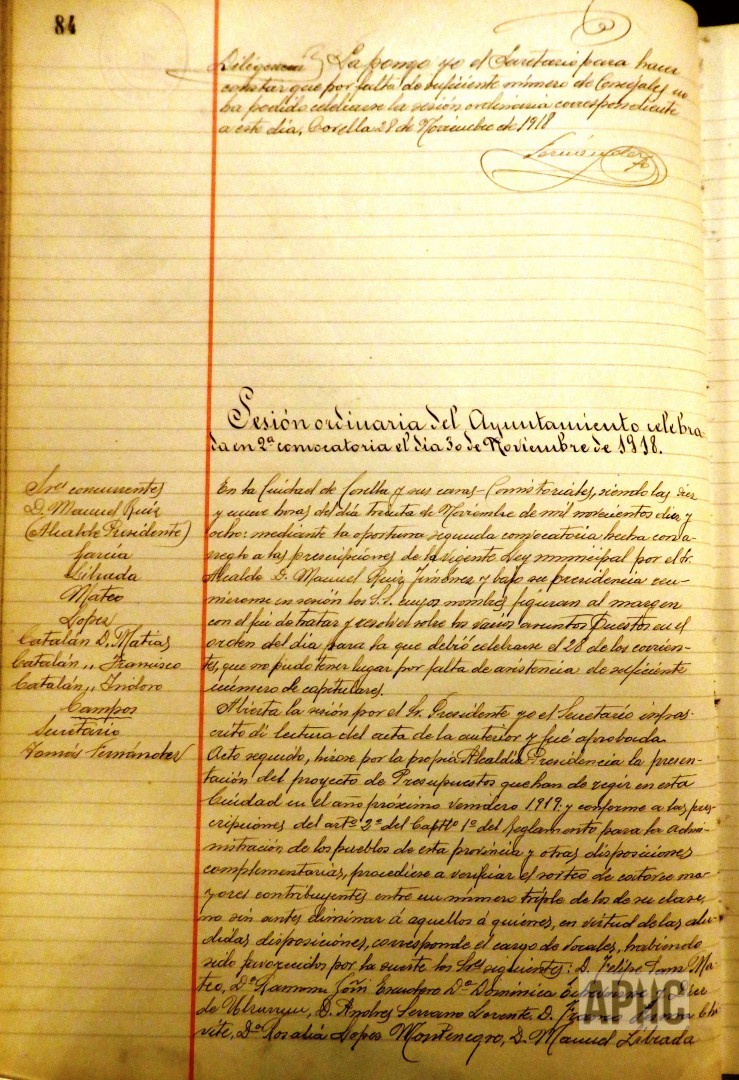 84
Diligencia} La pongo yo el Secretario para hacer
constar que por falta de suficiente número de Concejales no
ha podido celebrarse la sesión ordinaria correspondiente
a este día, Corella 28 de Noviembre de 1918
Fernández
Sesión ordinaria del Ayuntamiento celebra-
da en 2ª convocatoria el día 30 de Noviembre de 1918.
Sres concurrentes
D. Manuel Ruiz
(Alcalde Presidente)
García
Librada
Mateo
Lopez
Catalán D. Matias
Catalán " Francisco
Catalán " Isidoro
Campos
Secretario
Tomás Fernández
En la Ciudad de Corella y sus casas-Consistoriales, siendo las diez
y nueve horas del día treinta de Noviembre de mil novecientos diez y
ocho: mediante la oportuna segunda convocatoria hecha con a-
rreglo a las prescripciones de la vigente Ley municipal por el Sr.
Alcalde D. Manuel Ruiz Jiménez y bajo su presidencia reu-
nieronse en sesión los S.S. cuyos nombres figuran al margen
con el fin de tratar y resolver sobre los varios asuntos puestos en el
orden del día para la que debió celebrarse el 28 de los corrien-
tes, que no pudo tener lugar por falta de asistencia de suficiente
número de capitulares.
Abierta la sesión por el Sr. Presidente yo el Secretario infras-
crito di lectura del acta de la anterior y fué aprobada.
Acto seguido, hizose por la propia Alcaldía Presidencia la presen-
tación del proyecto de Presupuestos que han de regir en esta
Ciudad en el año próximo venidero 1919: y conforme a las pres-
cripciones del artº 2º del Captlo 1º del Reglamento para la admi-
nistración de los pueblos de esta provincia y otras disposiciones
complementarias, procediese a verificar el sorteo de catorce ma-
yores contribuyentes entre un número triple de los de su clase,
no sin antes eliminar á aquellos á quienes, en virtud de las alu-
didas disposiciones, corresponde el cargo de vocales, habiendo
sido favorecidos por la suerte los Sres siguientes: D. Felipe Sanz Ma-
teo, Dª Ramona Goñi Escudero Dª Dominica
de Uhurrun, D. Andres Serrano Lorente D. Chi-
vite, Dª Rosalía Lopez Montenegro, D. Manuel Librada
APHC